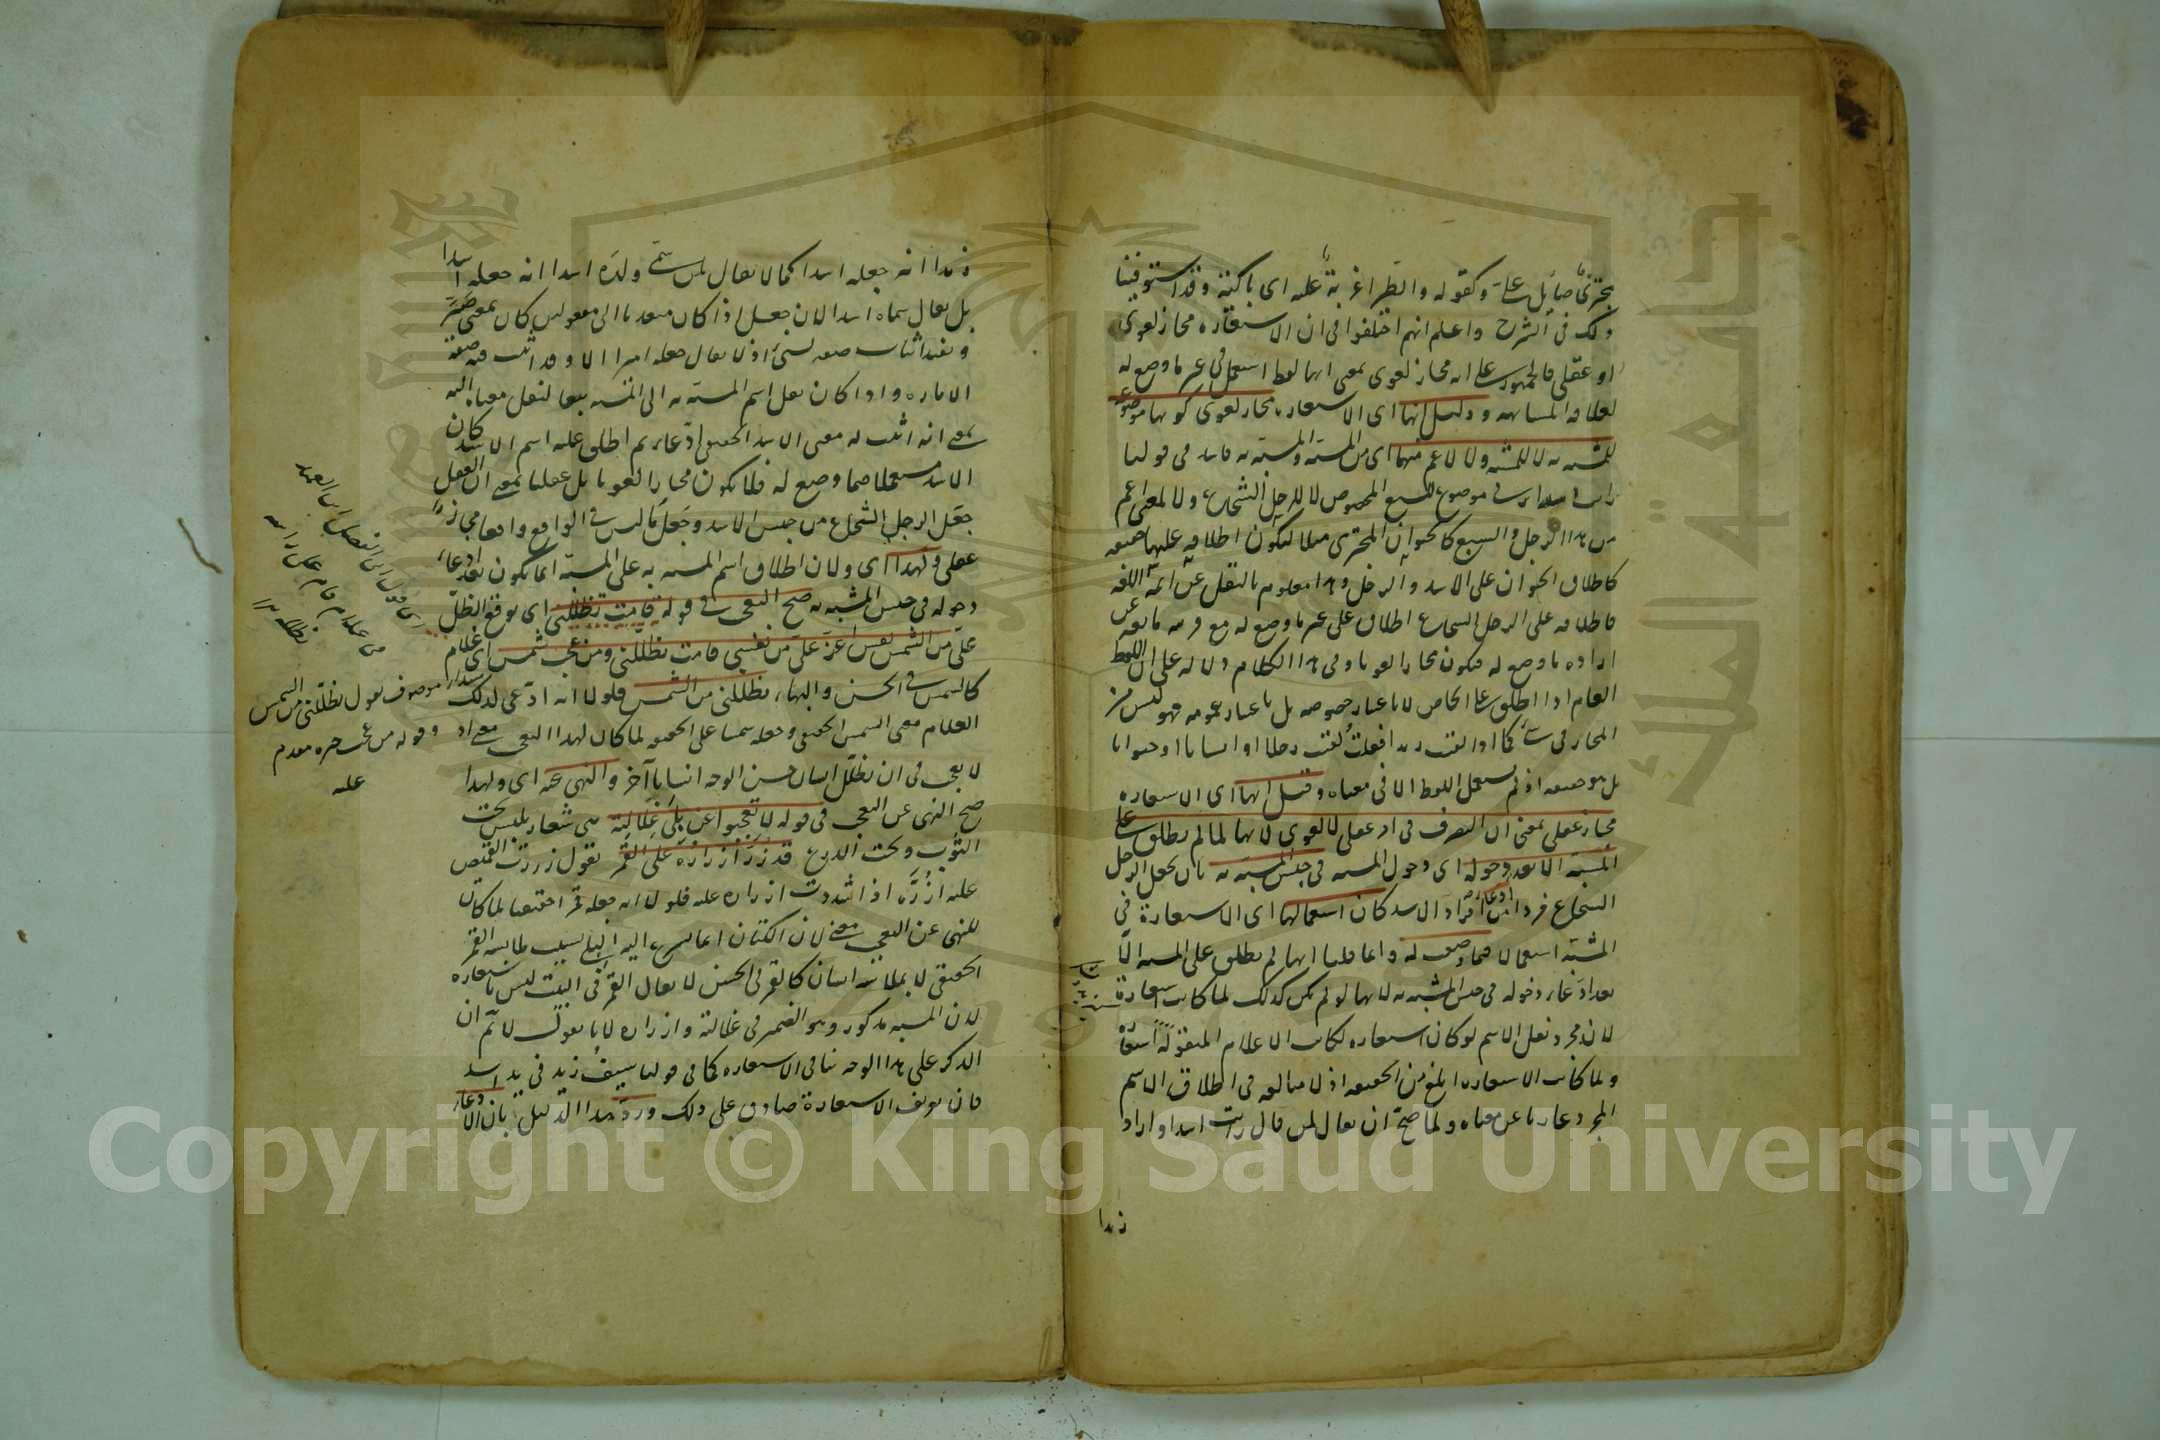 يجترئ صائل على وكقوله والطير اغربة عليه اى باكية وقد استوفينا
ذلك فى الشرح واعلم انهم اختلفوا فى ان الاستعارة مجاز لغوى
او عقلى فالجمهور على انه مجاز لغوى بمعنى انها لفظ استعمل فى غير ما وضع له
لعلاقة المشابهة ودليل انها اى الاستعارة مجاز لغوى كونها موضوعة
للمشبه به لا للمشبه ولا للاعم منهما اى من المشبه والمشبه به فاسد فى قولنا
رايت اسدا يرمى موضوع للسبع المخصوص لا للرجل الشجاع ولا لمعنى اعم
من هذا الرجل والسبع كالحيوان المجترى مثلا ليكون اطلاقه عليهما حقيقة
كاطلاق الحيوان على الاسد والرجل وهذا معلوم بالنقل عن ائمة اللغة
فاطلاقه على الرجل الشجاع اطلاق على غير ما وضع له مع قرينة مانعة عن
ارادة ما وضع له فيكون مجازا لغويا وفى هذا الكلام دلالة على ان اللفظ
العام اذا اطلق على الخاص لا باعتبار خصوصه بل باعتبار عمومه فهو ليس من
المجاز فى شئ كما اذا لقيت زيدا فقلت لقيت رجلا او انسانا او حيوانا
بل هو حقيقة اذ لم يستعمل اللفظ الا فى معناه وقيل انها اى الاستعارة
مجاز عقلى بمعنى ان التصرف فى امر عقلى لا لغوى لانها لما لم تطلق على
المشبه الا بعد دخوله اى دخول المشبه فى جنس المشبه به بان يجعل الرجل
الشجاع فردا من افراد الاسد كان استعمالها اى الاستعارة فى
ادعاء
المشبه استعمالا فيما وضعت له وانما قلنا انها لم تطلق على المشبه الا
بعد ادعاء دخوله فى جنس المشبه به لانها لو لم تكن كذلك لما كانت استعارة
لان مجرد نقل الاسم لو كان استعارة لكانت الاعلام المنقولة استعارة
ولما كانت الاستعارة ابلغ من الحقيقة اذ لا مبالغة فى اطلاق الاسم
المجرد عاريا عن معناه ولما صح ان يقال لمن قال رايت اسدا واراد
زيدا
زيدا انه جعله اسدا كما لا يقال لمن سمى ولده اسدا انه جعله اسدا
بل يقال سماه اسدا لان جعل اذا كان متعديا الى مفعولين كان بمعنى صير
ويفيد اثبات صفة لشئ اذ لا يقال جعله اميرا الا وقد اثبت فيه صفة
الامارة واذا كان نقل اسم المشبه به الى المشبه تبعا لنقل معناه اليه
بمعنى انه اثبت له معنى الاسد الحقيقى ادعاء ثم اطلق عليه اسم الاسد كان
الاسد مستعملا فيما وضع له فلا يكون مجازا لغويا بل عقليا بمعنى ان العقل
جعل الرجل الشجاع من جنس الاسد وجعل ما ليس فى الواقع واقعا مجاز
عقلى ولهذا اى ولان اطلاق اسم المشبه به على المشبه انما يكون بعد ادعاء
دخوله فى جنس المشبه به صح التعجب فى قوله قامت تظللنى اى توقع الظل
على من الشمس نفس اعز على من نفسى قامت تظللنى ومن عجب شمس اى غلام
كالشمس فى الحسن والبهاء تظللنى من الشمس فلولا انه ادعى لذلك
الغلام معنى الشمس الحقيقى وجعله شمسا على الحقيقة لما كان لهذا التعجب معنى اذ
لا تعجب فى ان يظلل انسان حسن الوجه انسانا آخر والنهى عنه اى ولهذا
صح النهى عن التعجب فى قوله لا تعجبوا من بلى غلالته هى شعار يلبس تحت
الثوب وتحت الدرع قد زر ازراره على القمر تقول زررت القميص
عليه ازره اذا شددت ازراره عليه فلولا انه جعله قمرا حقيقيا لما كان
للنهى عن التعجب معنى لان الكتان انما يسرع اليه البلى بسبب ملابسة القمر
الحقيقى لا بملابسة انسان كالقمر فى الحسن لا يقال القمر فى البيت ليس باستعارة
لان المشبه مذكور وهو الضمير فى غلالته وازراره لانا نقول لا نم ان
الذكر على هذا الوجه ينافى الاستعارة كما فى قولنا سيف زيد فى يد اسد
فان تعريف الاستعارة صادق على ذلك ورد هذا الدليل بان الادعاء
موصوف بقول تظللنى من الشمس
وقوله من عجب خبره مقدم
عليه
Copyright © King Saud University